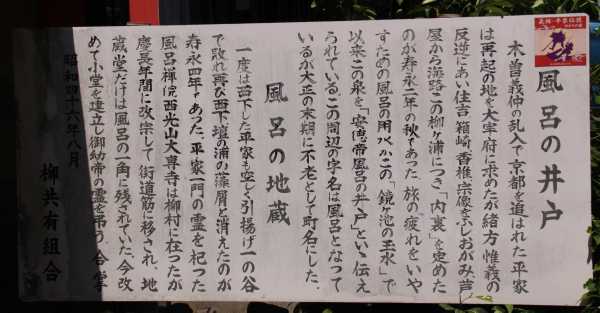 風呂の井戸
木曽義仲の乱入で京都を追はれた平家
は再起の地を大宰府に求めたが緒方惟義の
反逆にあい住吉箱崎香椎宗像をふしおがみ芦
屋から海路この柳ヶ浦につき「内裏」を定めた
のが寿永二年の秋であった 旅の疲れをいや
すための風呂の用水がこの「鏡ヶ池の玉水」で
以来この泉を「安徳帝風呂の井戸」といゝ伝え
られている。この周辺の字名は風呂となって
いるが大正の末期に不老として町名にした。
風呂の地蔵
一度は西下した平家も空しく引揚げ一の谷
で敗れ再び西下壇の浦の藻屑と消えたのが
寿永四年であった。平家一門の霊を祀った
風呂禅院西光山大専寺は柳村に在ったが
慶長年間に改宗して街道筋に移され、地
蔵堂だけは風呂の一角に残されていた、今改
めて小堂を建立し御幼帝の霊を弔う。合掌
昭和四十六年八月
柳共有組合